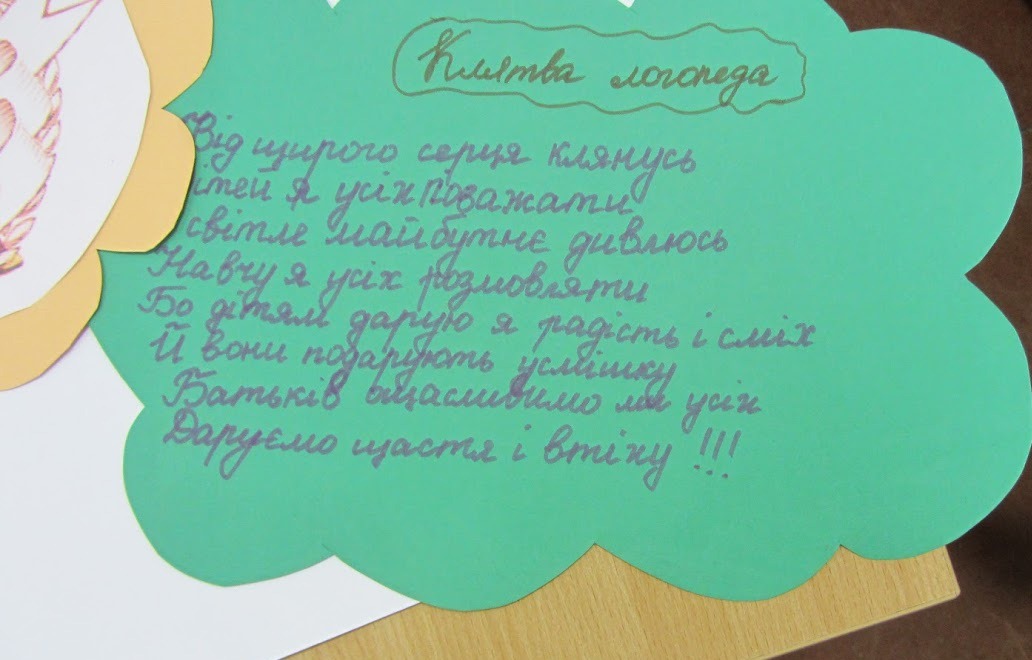 Клятва логопеда
Від щирого серця клянусь
ітей я усіх поважати
світле майбутнє дивлюсь
Навчу я усіх розмовляти
Бо дітям дарую я радість і сміх
Й вони подарують усмішку
Батьків ощасливимо ми усіх
Даруємо щастя і втіху !!!